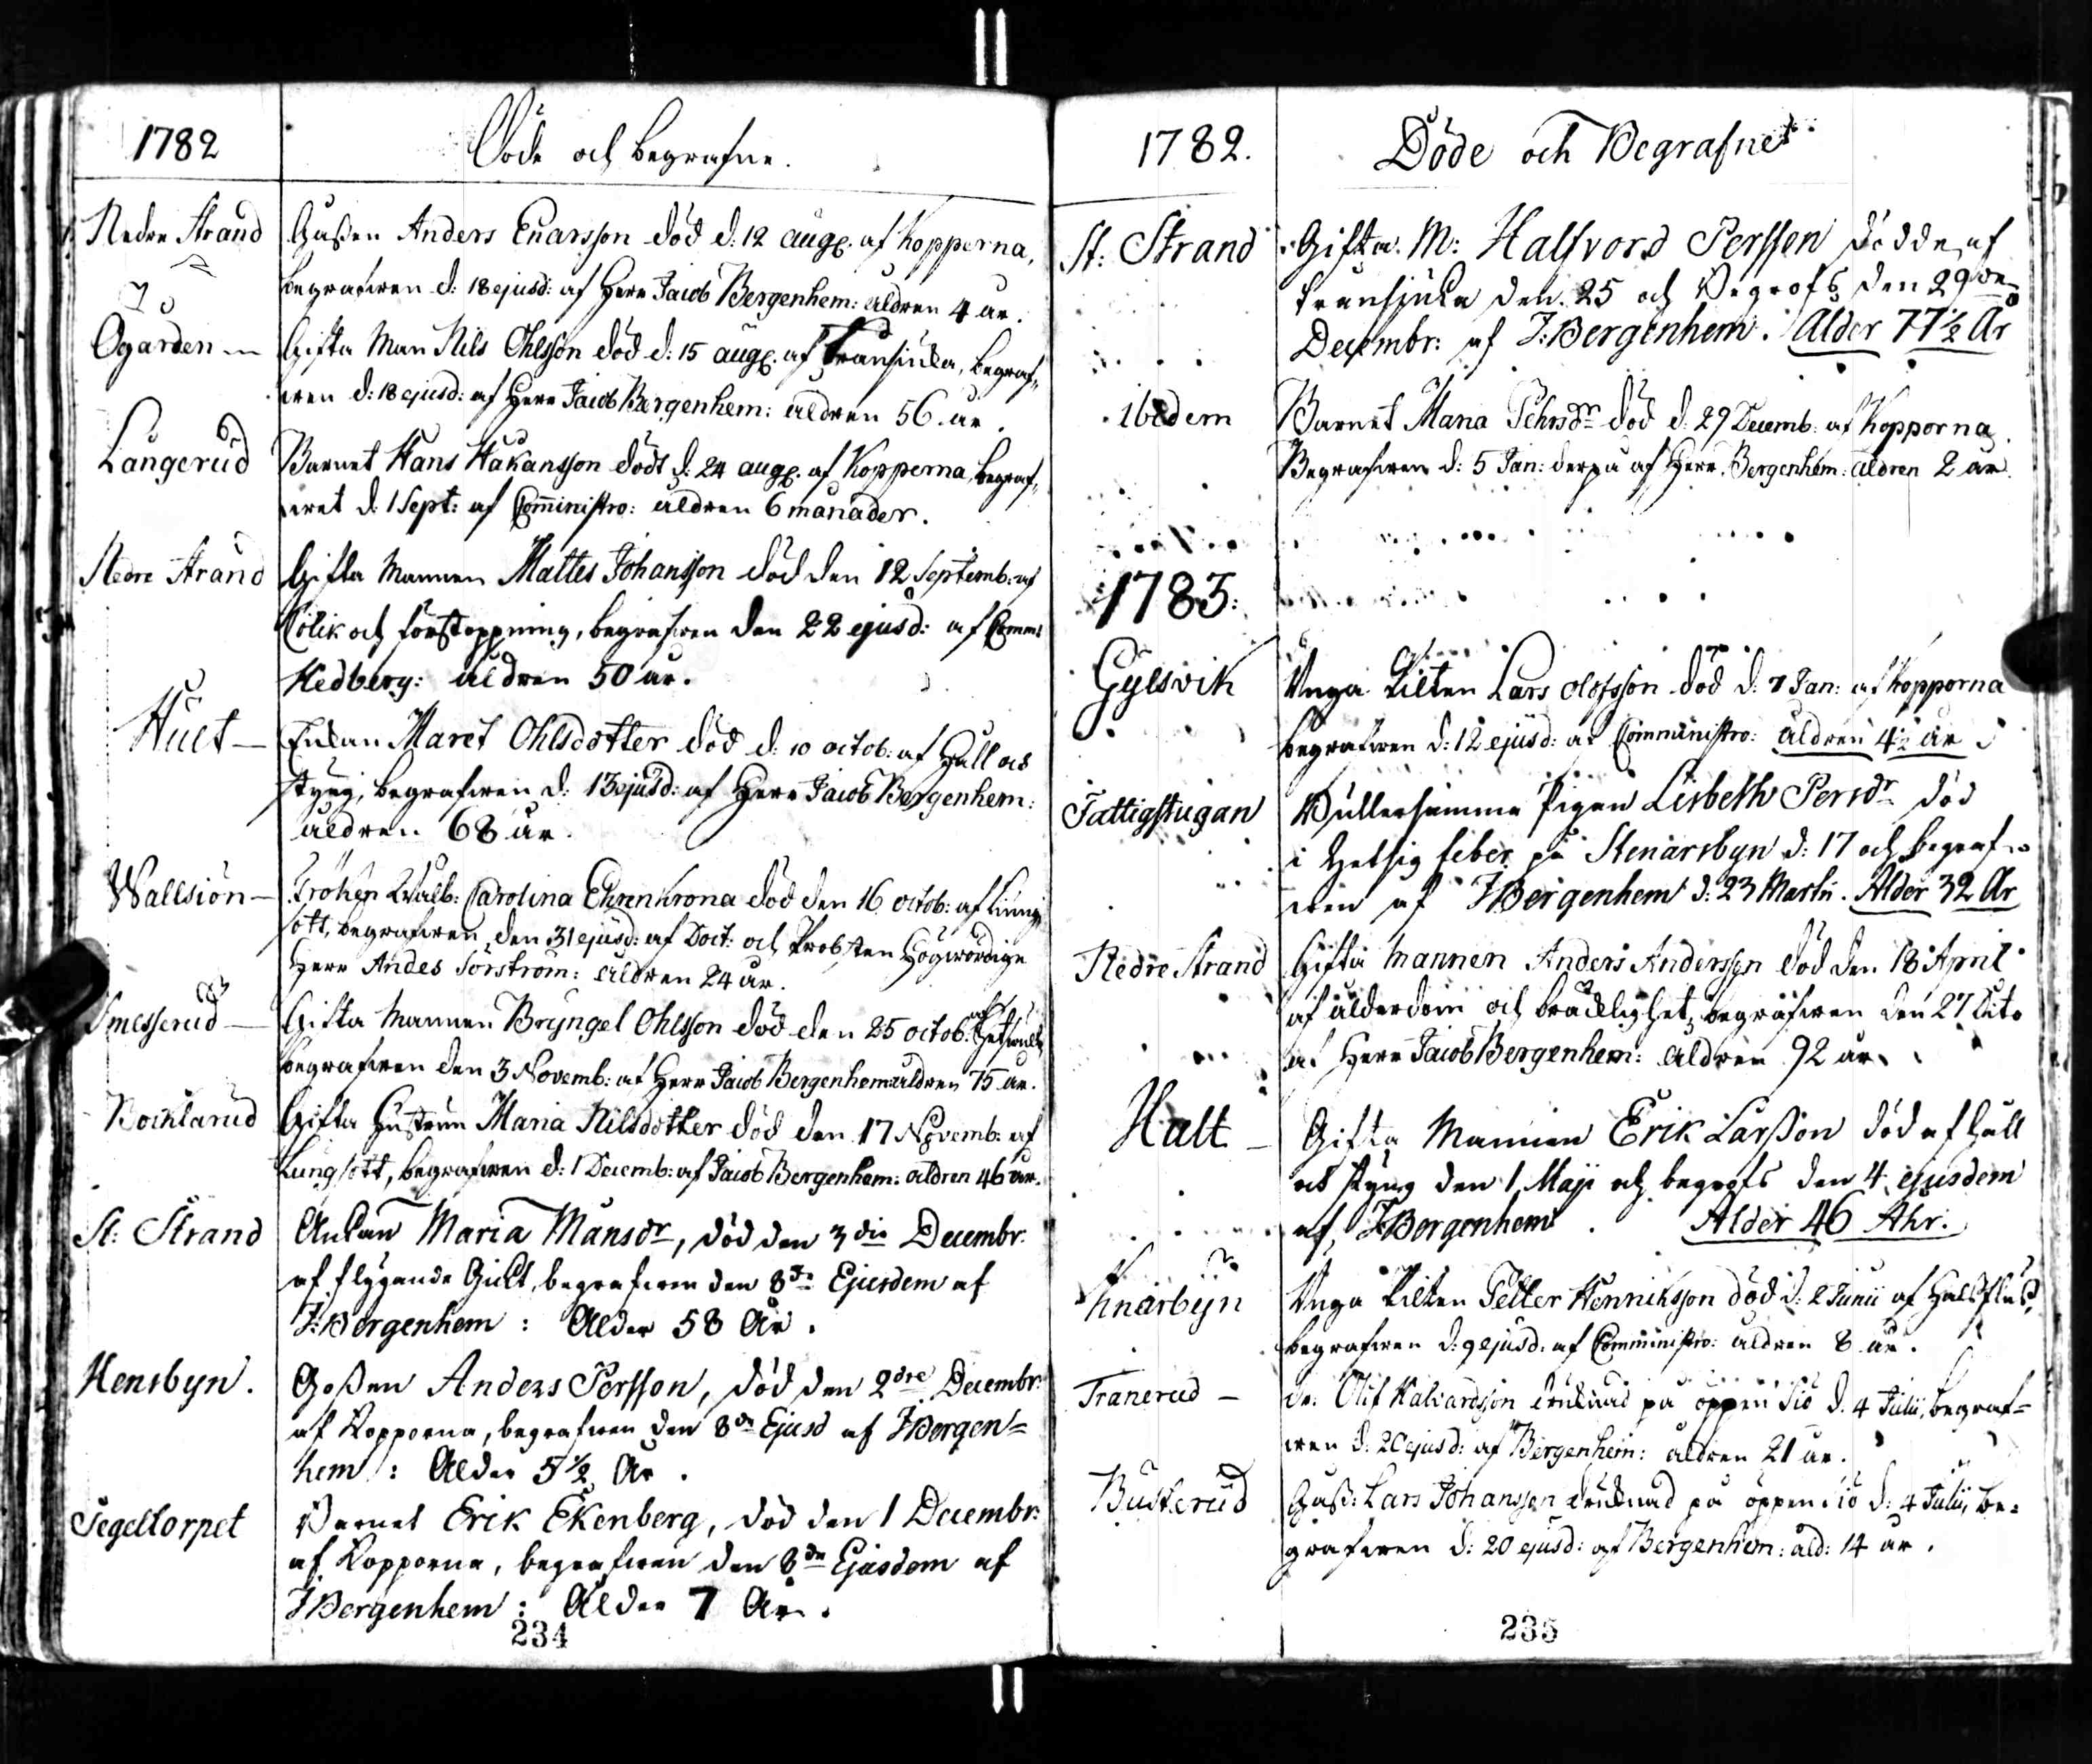 1782
Döde och begrafne.
Nedre Strand
Gåßen Anders Enarsson död d: 12 aug. af Kopporna,
begrafwen d: 18 ejusd: af Herr Jacob Bergenhem: åldren 4 år.
Ögården
Gifta Man Nils Ohlsson död d: 15 aug. af Transiuka, begraf-
wen d: 18 ejusd: af Herr Jacob Bergenhem: åldren 56 år.
Långerud
Barnet Hans Håkansson dödt d: 24 aug. af Kopporna, begraf-
wet d: 1 Sept: af Comministro: åldren 6 månader.
Nedre Strand
Gifta Mannen Mattes Johansson död den 12 Septemb: af
Colik och förstoppning, begrafwen den 22 ejusd: af Comm:
Hedberg: åldren 50 år.
Hult
Enkan Maret Ohlsdotter död d: 10 octob: af Håll och
styng, begrafwen d: 13 ejusd: af Herr Jacob Bergenhem:
åldren 68 år.
Wallsiön
Fröken Walb: Carolina Ehrenkrona död den 16 octob: af Lung
sott, begrafwen den 31 ejusd: af Doct: och Probsten Högwördige
Herr Andes Sörström: åldren 24 år.
Smesserud
Gifta Mannen Bryngel Ohlsson död den 25 octob. af
begrafwen den 3 Novemb: af Herr Jacob Bergenhem: åldren 75 år.
Bocklarud
Gifta Hustrun Maria Nilsdotter död den 17 Novemb: af
Lungsott, begrafwen d: 1 Decemb: af Jacob Bergenhem: åldren 46 år.
St: Strand
Enkan Maria Månsdr, död den 3die Decembr:
af flygande Gickt, begrafwen den 8de Ejusdem af
J: Bergenhem: Ålder 58 År.
Hensbyn.
Goßen Anders Persson, död den 2dre Decembr:
af Kopporna, begrafwen den 8de Ejusd af J Bergen=
hem: Ålder 5 1/2 År.
Segeltorpet
Barnet Erik Ekenberg, död den 1 Decembr:
af Kopporna, begrafwen den 8de Ejusdem af
J Bergenhem: Ålder 7 År.
234
1782.
Döde och Begrafne
St: Strand
Gifta M: Halfvord Persson dödde af
Transjuka den 25 och Begrofs den 29de
Decembr: af J: Bergenhem. Ålder 77 1/2 År
Ibidem
Barnet Maria Pehrsdr död d: 29 Decemb: af Kopporna
Begrafwen d: 5 Jan: derpå af Herr Bergenhem: åldren 2 år.
1783:
Gylsvik
Unga Pilten Lars Olofsson död d: 7 Jan: af Kopporna
begrafwen d: 12 ejusd: af Comministro: åldren 4 1/2 år
Fattigstugan
Pigan Lisbeth Persdr död
i Hetsig feber på Stenarsbyn d: 17 och begraf-
wen af J Bergenhem d: 23 Martii. Ålder 32 År
Nedre Strand
Gifta Mannen Anders Andersson död den 18 April
af ålderdom och bräcklighet, begrafwen den 27 Dito
af Herr Jacob Bergenhem: åldren 92 år.
Hult
Gifta Mannen Erik Larßon död af Håll
och styng den 1 Maji och begrofs den 4 ejusdem
af J Bergenhem. Ålder 46 Åhr.
Knarbyn
Unga Pilten Petter Henriksson död d: 2 Junii af Halsfluß,
begrafwen d: 9 ejusd: af Comministro: åldren 8 år.
Tranerud
dr: Olif Halvardsson drucknad på öppen siö d. 4 Julii, begraf=
wen d: 20 ejusd: af Bergenhem: åldren 21 år.
Busterud
Gåß: Lars Johansson drucknad på öppen siö d: 4 Julii, be=
grafwen d: 20 ejusd: af Bergenhem: åld: 14 år.
235